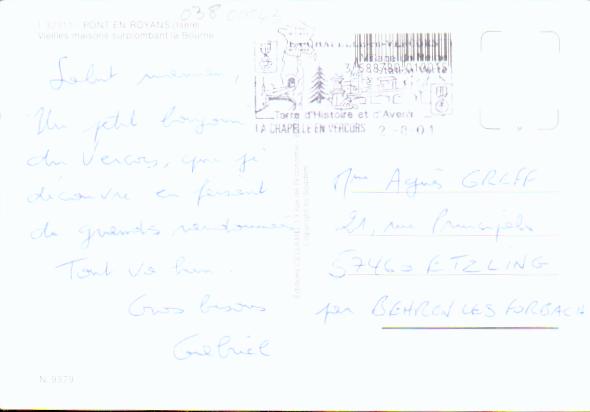 PONT EN ROYANS (Isère)
Vieilles maisons surplombant la Bourne
Salut maman,
Un petit bonjour
du Vercors, que je
découvre en faisant
de grandes randonnées
Tout va bien.
Gros bisous
Gabriel
N. 9379
LA CHAPELLE-EN-VERCORS
Terre d'Histoire et d'Avenir
LA CHAPELLE EN VERCORS 2-8-01
Mme Agnès GREFF
21, rue Principale
57460 ETZLING
par BEHREN LES FORBACH